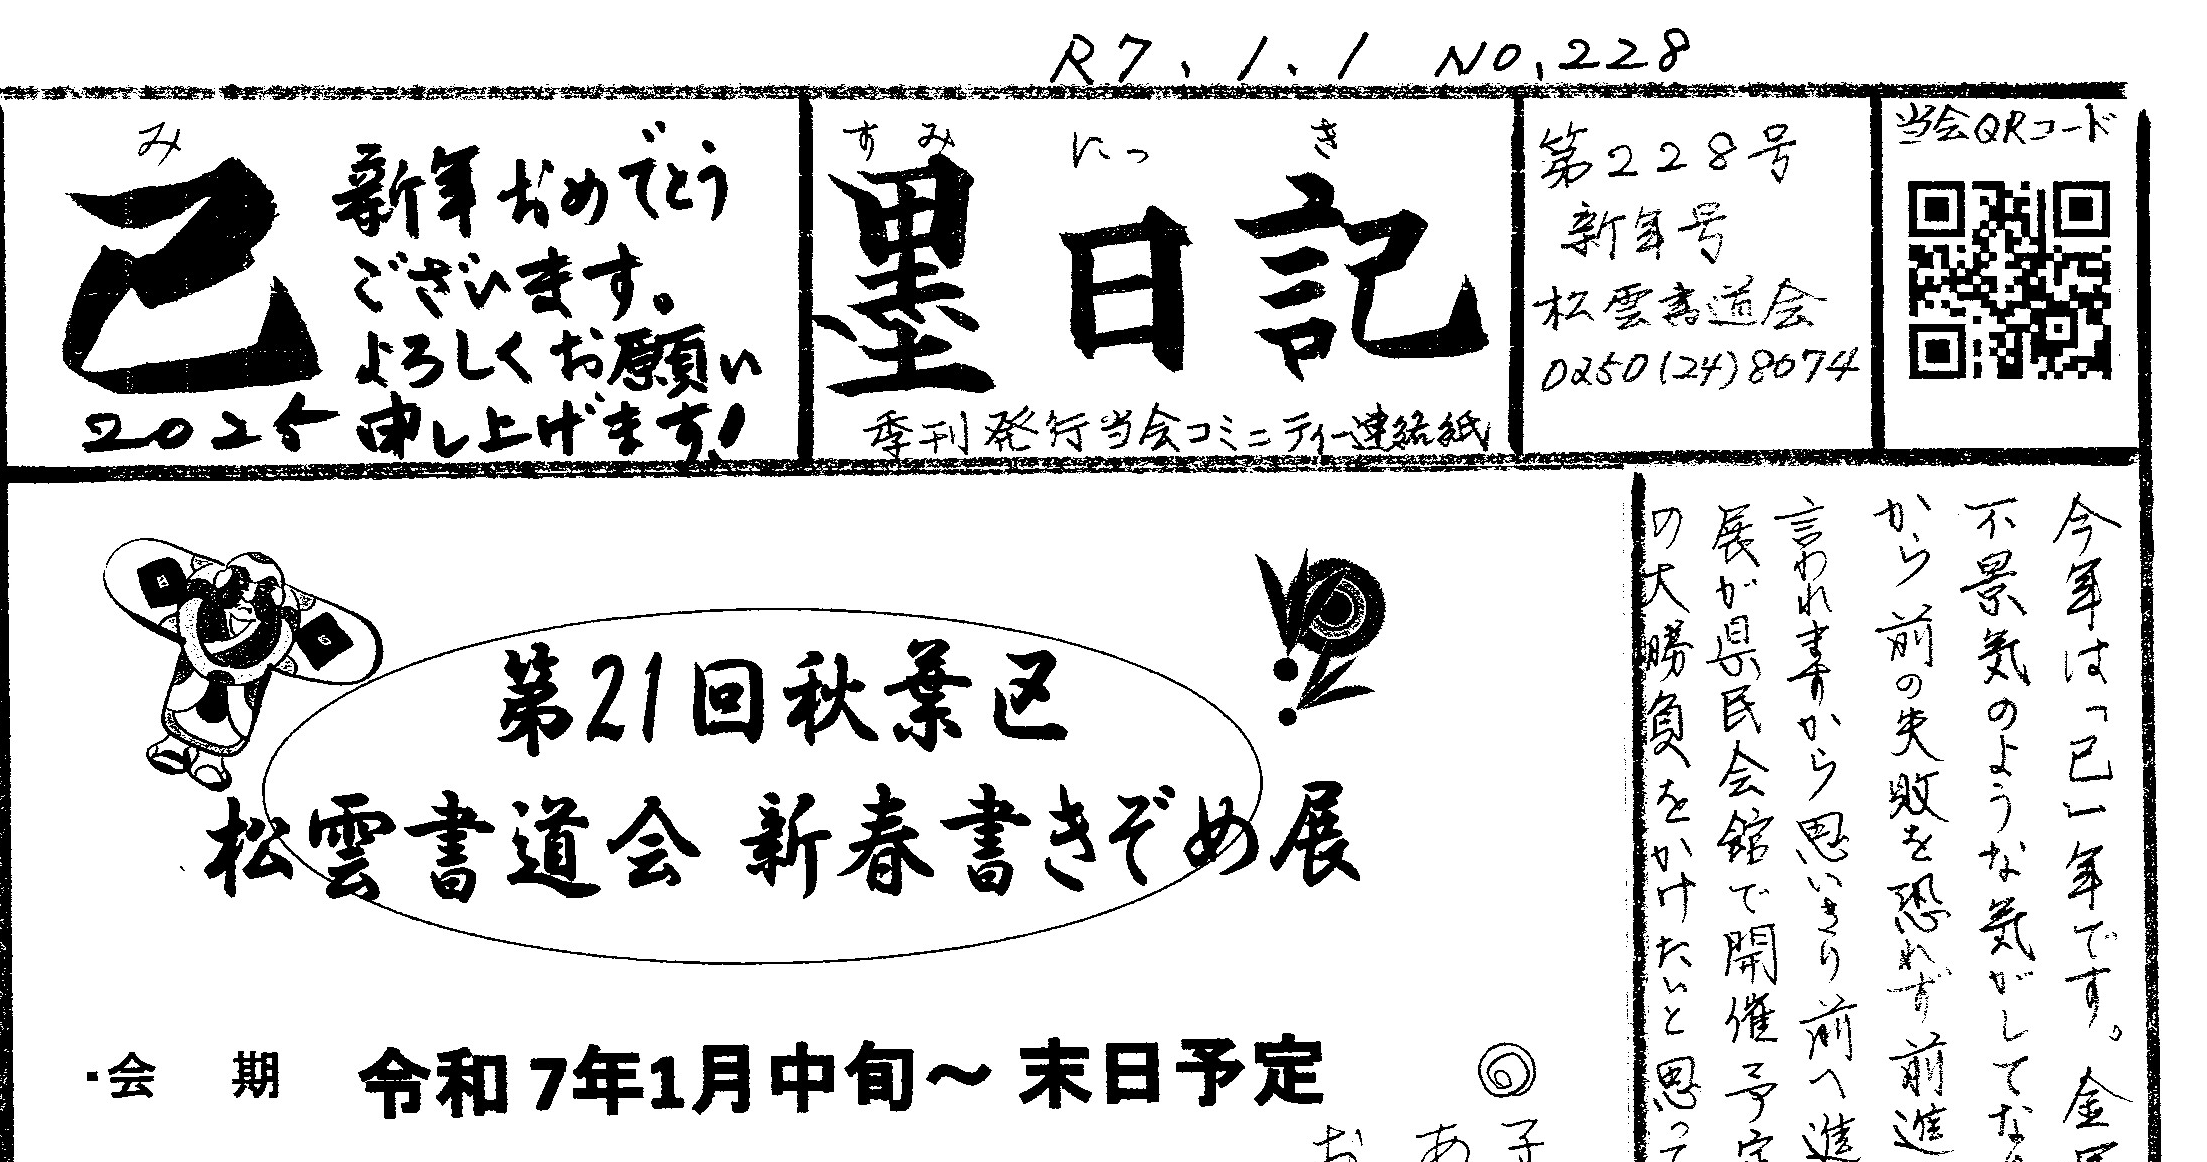 R7.1.1 NO.228
み
己
2025
新年おめでとう
ございます。
よろしくお願い
申し上げます!
すみ にっ き
墨日記
季刊発行当会コミニティー連絡紙
第228号
新年号
松雲書道会
0250(24)8674
当会QRコード
今年は「己」年です。金
不景気のような気がしてな
から前の失敗を恐れず前進
言われますから思いきり前へ進
展が県民会館で開催予定
の大勝負をかけたいと思って
第21回秋葉区
松雲書道会 新春書きぞめ展
・会 期 令和7年1月中旬~末日予定
お あ 子